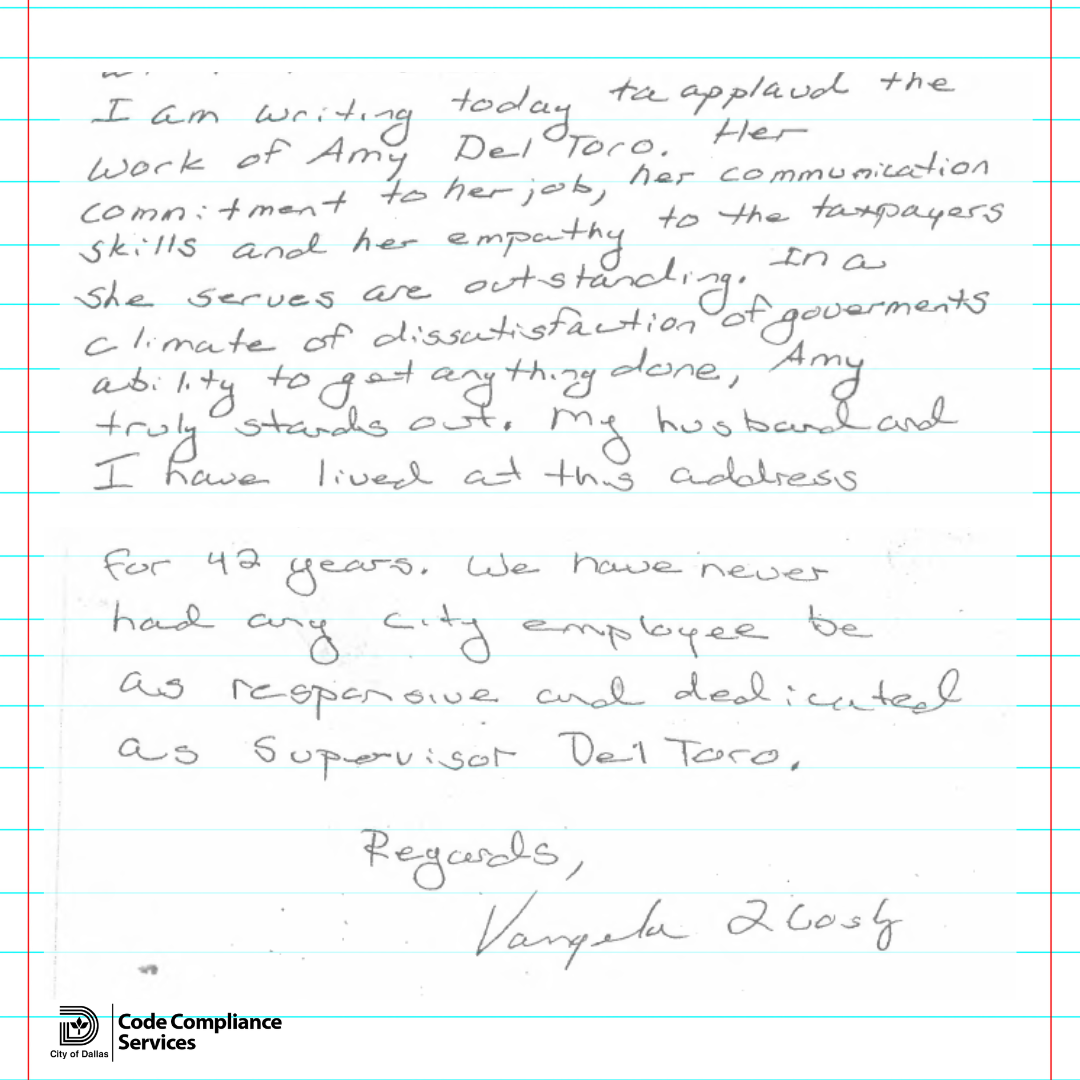 I am writing today to applaud the
work of Amy Del Toro. Her
commitment to her job, her communication
skills and her empathy to the taxpayers
she serves are outstanding. In a
climate of dissatisfaction of goverments
ability to get anything done, Amy
truly stands out. My husband and
I have lived at this address
for 42 years. We have never
had any city employee be
as responsive and dedicated
as Supervisor Del Toro.
Regards,
Vangela
City of Dallas
Code Compliance
Services